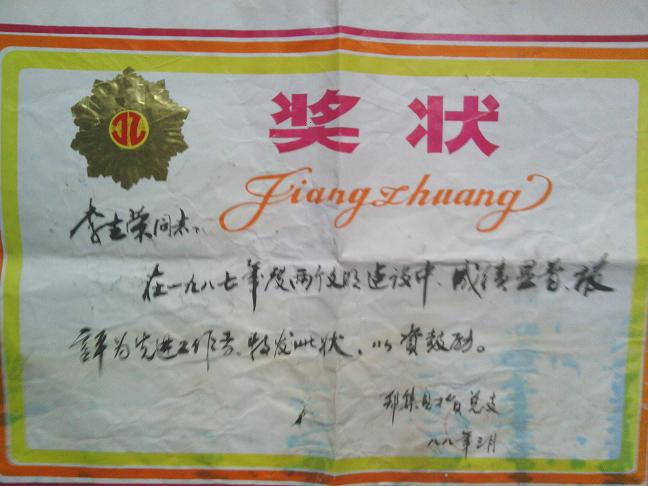 奖状
Jiangzhuang
李志荣同志:
在一九八七年度两个文明建设中,成绩显著,被
評为先进工作者。特发此状,以资鼓励。
总支
八八年三月